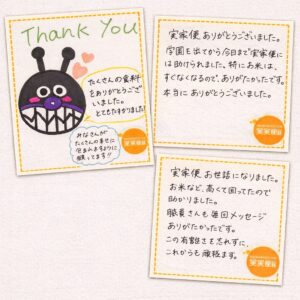 Thank You
たくさんの食料を
ありがとうござ
いました。
とてもたすかりました!
みなさんが
たくさんの幸せに
包まれますように
願ってます!!
実家便
実家便ありがとうございました。
学園を出てから今日まで実家便に
は助けられました。特にお米は、
すぐなくなるので、ありがたかったです。
本当にありがとうございました。
実家便
実家便お世話になりました。
お米など、高くて困ってたので
助かりました。
職員さんも毎回メッセージ
ありがたかったです。
この有難さを忘れずに、
これからも頑張ります。
実家便